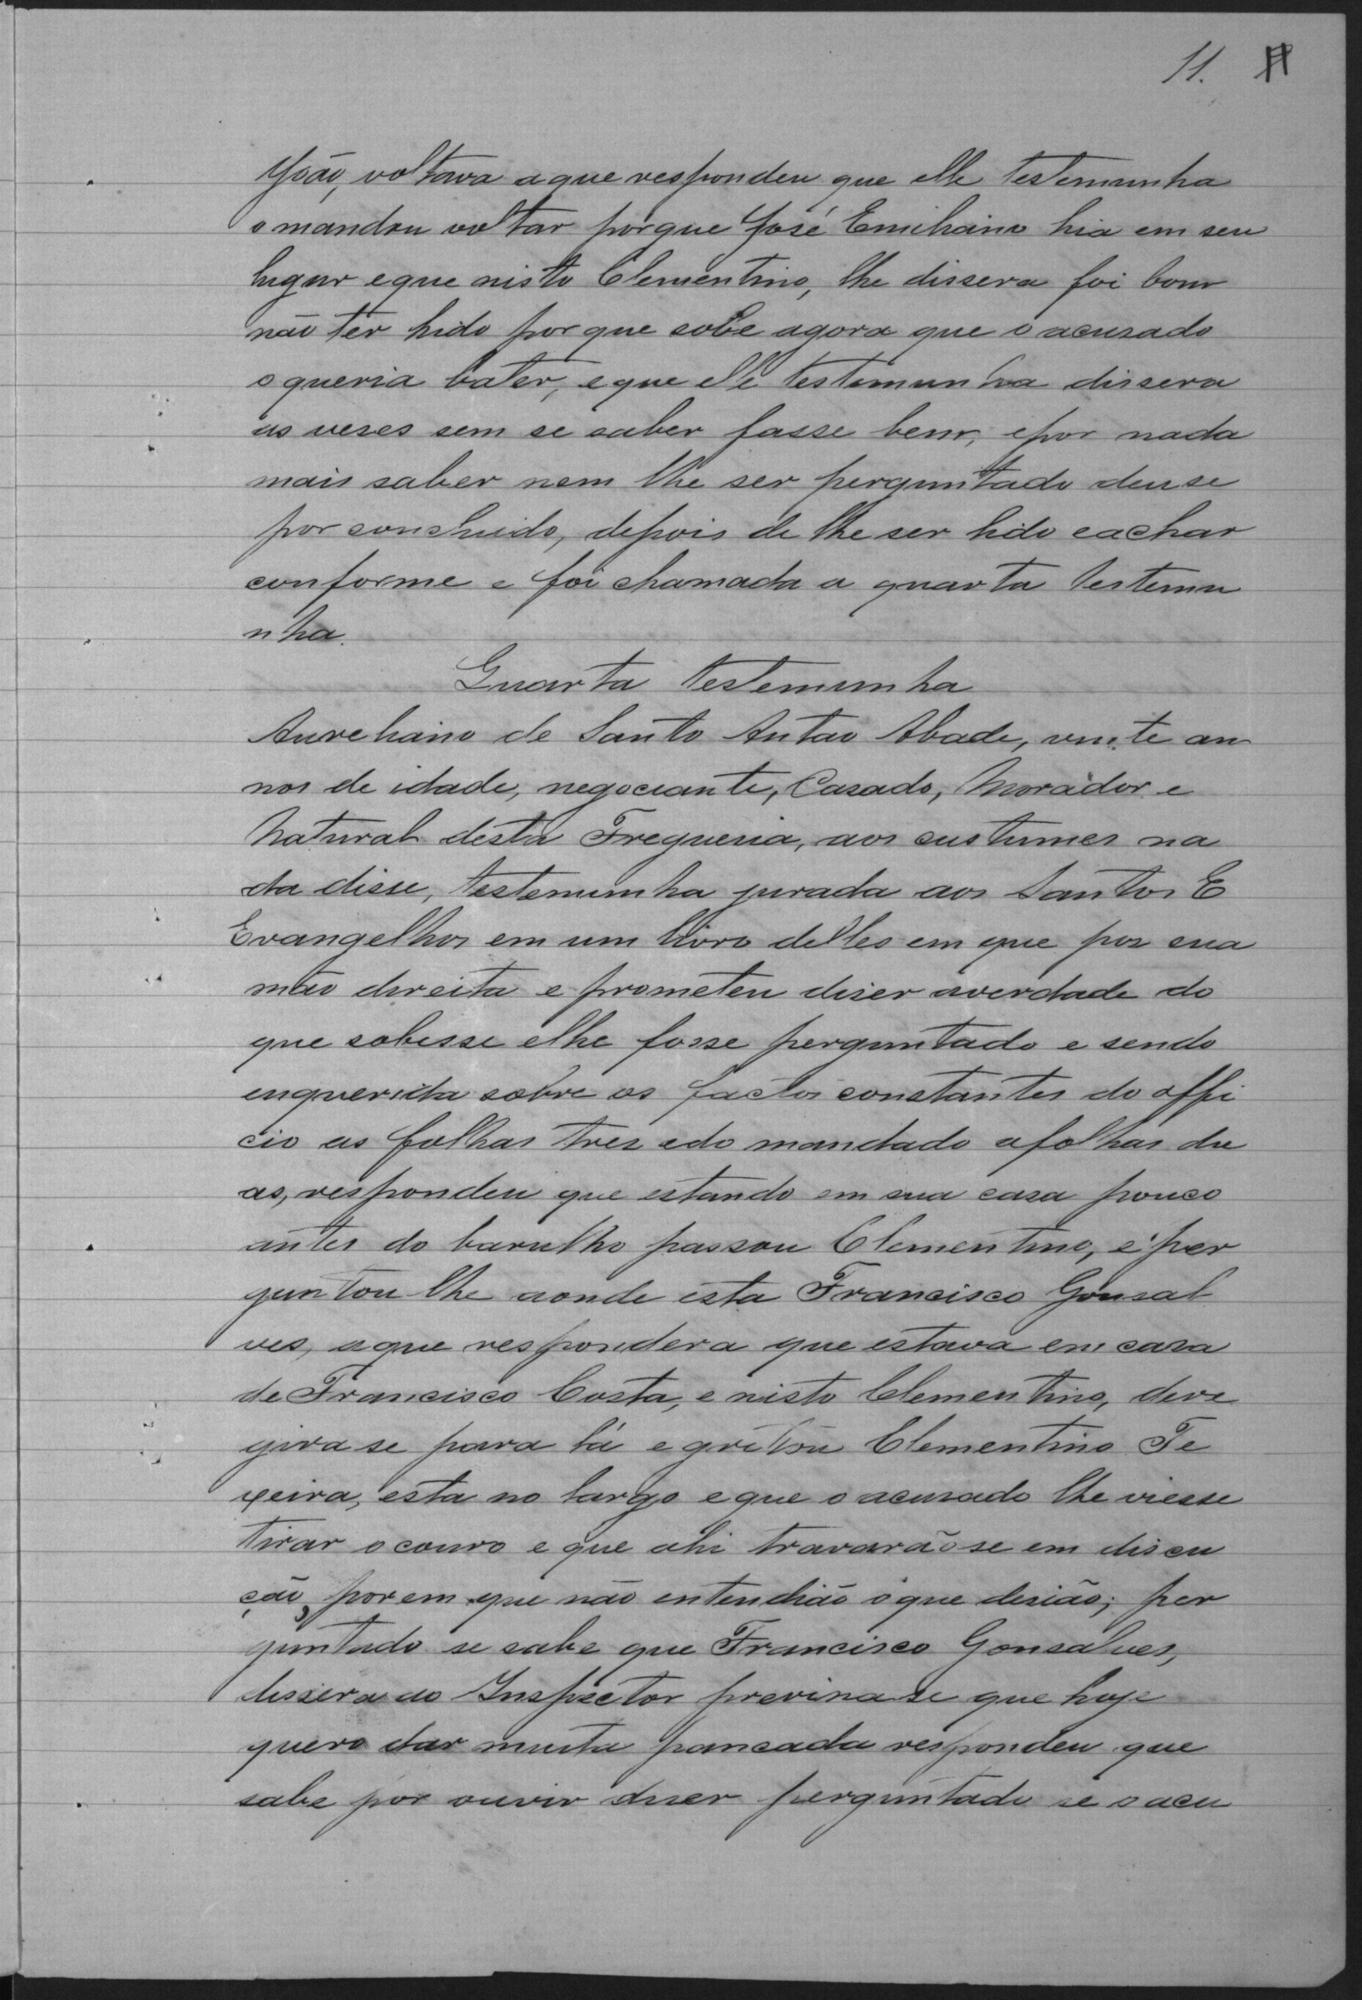 11.
João, voltava aque respondeu que elle testemunha
o mandou voltar porque José Emiliano hia em seu
lugar eque nisto Clementino, lhe dissera foi bom
não ter hido porque sobe agora que o acusado
o queria bater, eque elle testemunha dissera
as veses sem se saber fasse bem, epor nada
mais saber nem lhe ser perguntado deuse
por concluido, depois de lhe ser lido eachar
conforme e foi chamada a quarta testemu
nha.
Quarta testemunha
Aureliano de Santo Antão Abade, vinte an
nos de idade, negociante, Casado, Morador e
Natural desta Freguesia, aos custumes na
da disse, testemunha jurada aos Santos E
Evangelhos em um livro delles em que pos sua
mão direita e prometeu diser averdade do
que sobesse elhe fosse perguntado e sendo
enquerida sobre os factos constantes do offi
cio as folhas tres edo mandado afolhas du
as, respondeu que estando em sua casa pouco
antes do barulho passou Clementino, e per
guntou lhe aonde esta Francisco Gonsal
ves, aque respondera que estava em casa
de Francisco Costa, e nisto Clementino, deri
gira se para lá egritou Clementino Te
xeira, esta no largo eque o acusado lhe viesse
tirar ocouro e que ahi travarãose em discu
ção, porem que não entendião oque desião; per
guntado se sabe que Francisco Gonsalves,
dissera ao Inspector previna se que hoje
quero dar muita pancada respondeu que
sabe por ouvir diser perguntado se oacu